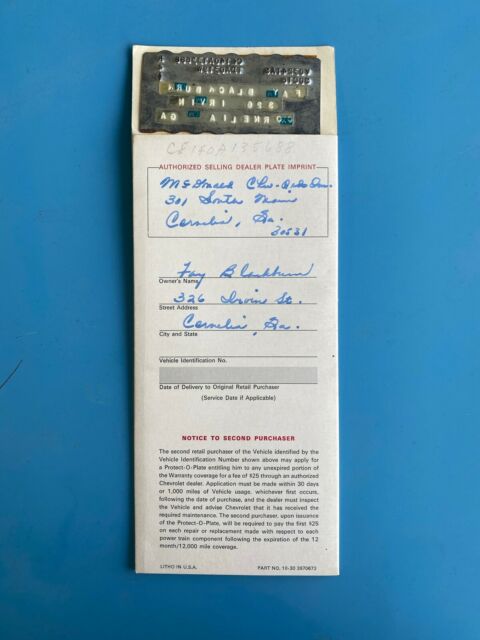 FAY BLACKBURN
326 IRVIN
CORNELIA GA
CE140A135688
AUTHORIZED SELLING DEALER PLATE IMPRINT
McDonald Chev-Olds Inc.
301 South Main
Cornelia, Ga.
30531
Fay Blackburn
Owner's Name
326 Irvin St.
Street Address
Cornelia, Ga.
City and State
Vehicle Identification No.
Date of Delivery to Original Retail Purchaser
(Service Date if Applicable)
NOTICE TO SECOND PURCHASER
The second retail purchaser of the Vehicle identified by the
Vehicle Identification Number shown above may apply for
a Protect-O-Plate entitling him to any unexpired portion of
the Warranty coverage for a fee of $25 through an authorized
Chevrolet dealer. Application must be made within 30 days
or 1,000 miles of Vehicle usage, whichever first occurs,
following the date of purchase, and the dealer must inspect
the Vehicle and advise Chevrolet that it has received the
required maintenance. The second purchaser, upon issuance
of the Protect-O-Plate, will be required to pay the first $25
on each repair or replacement made with respect to each
power train component following the expiration of the 12
month/12,000 mile coverage.
LITHO IN U.S.A. PART NO. 10-30 3970673